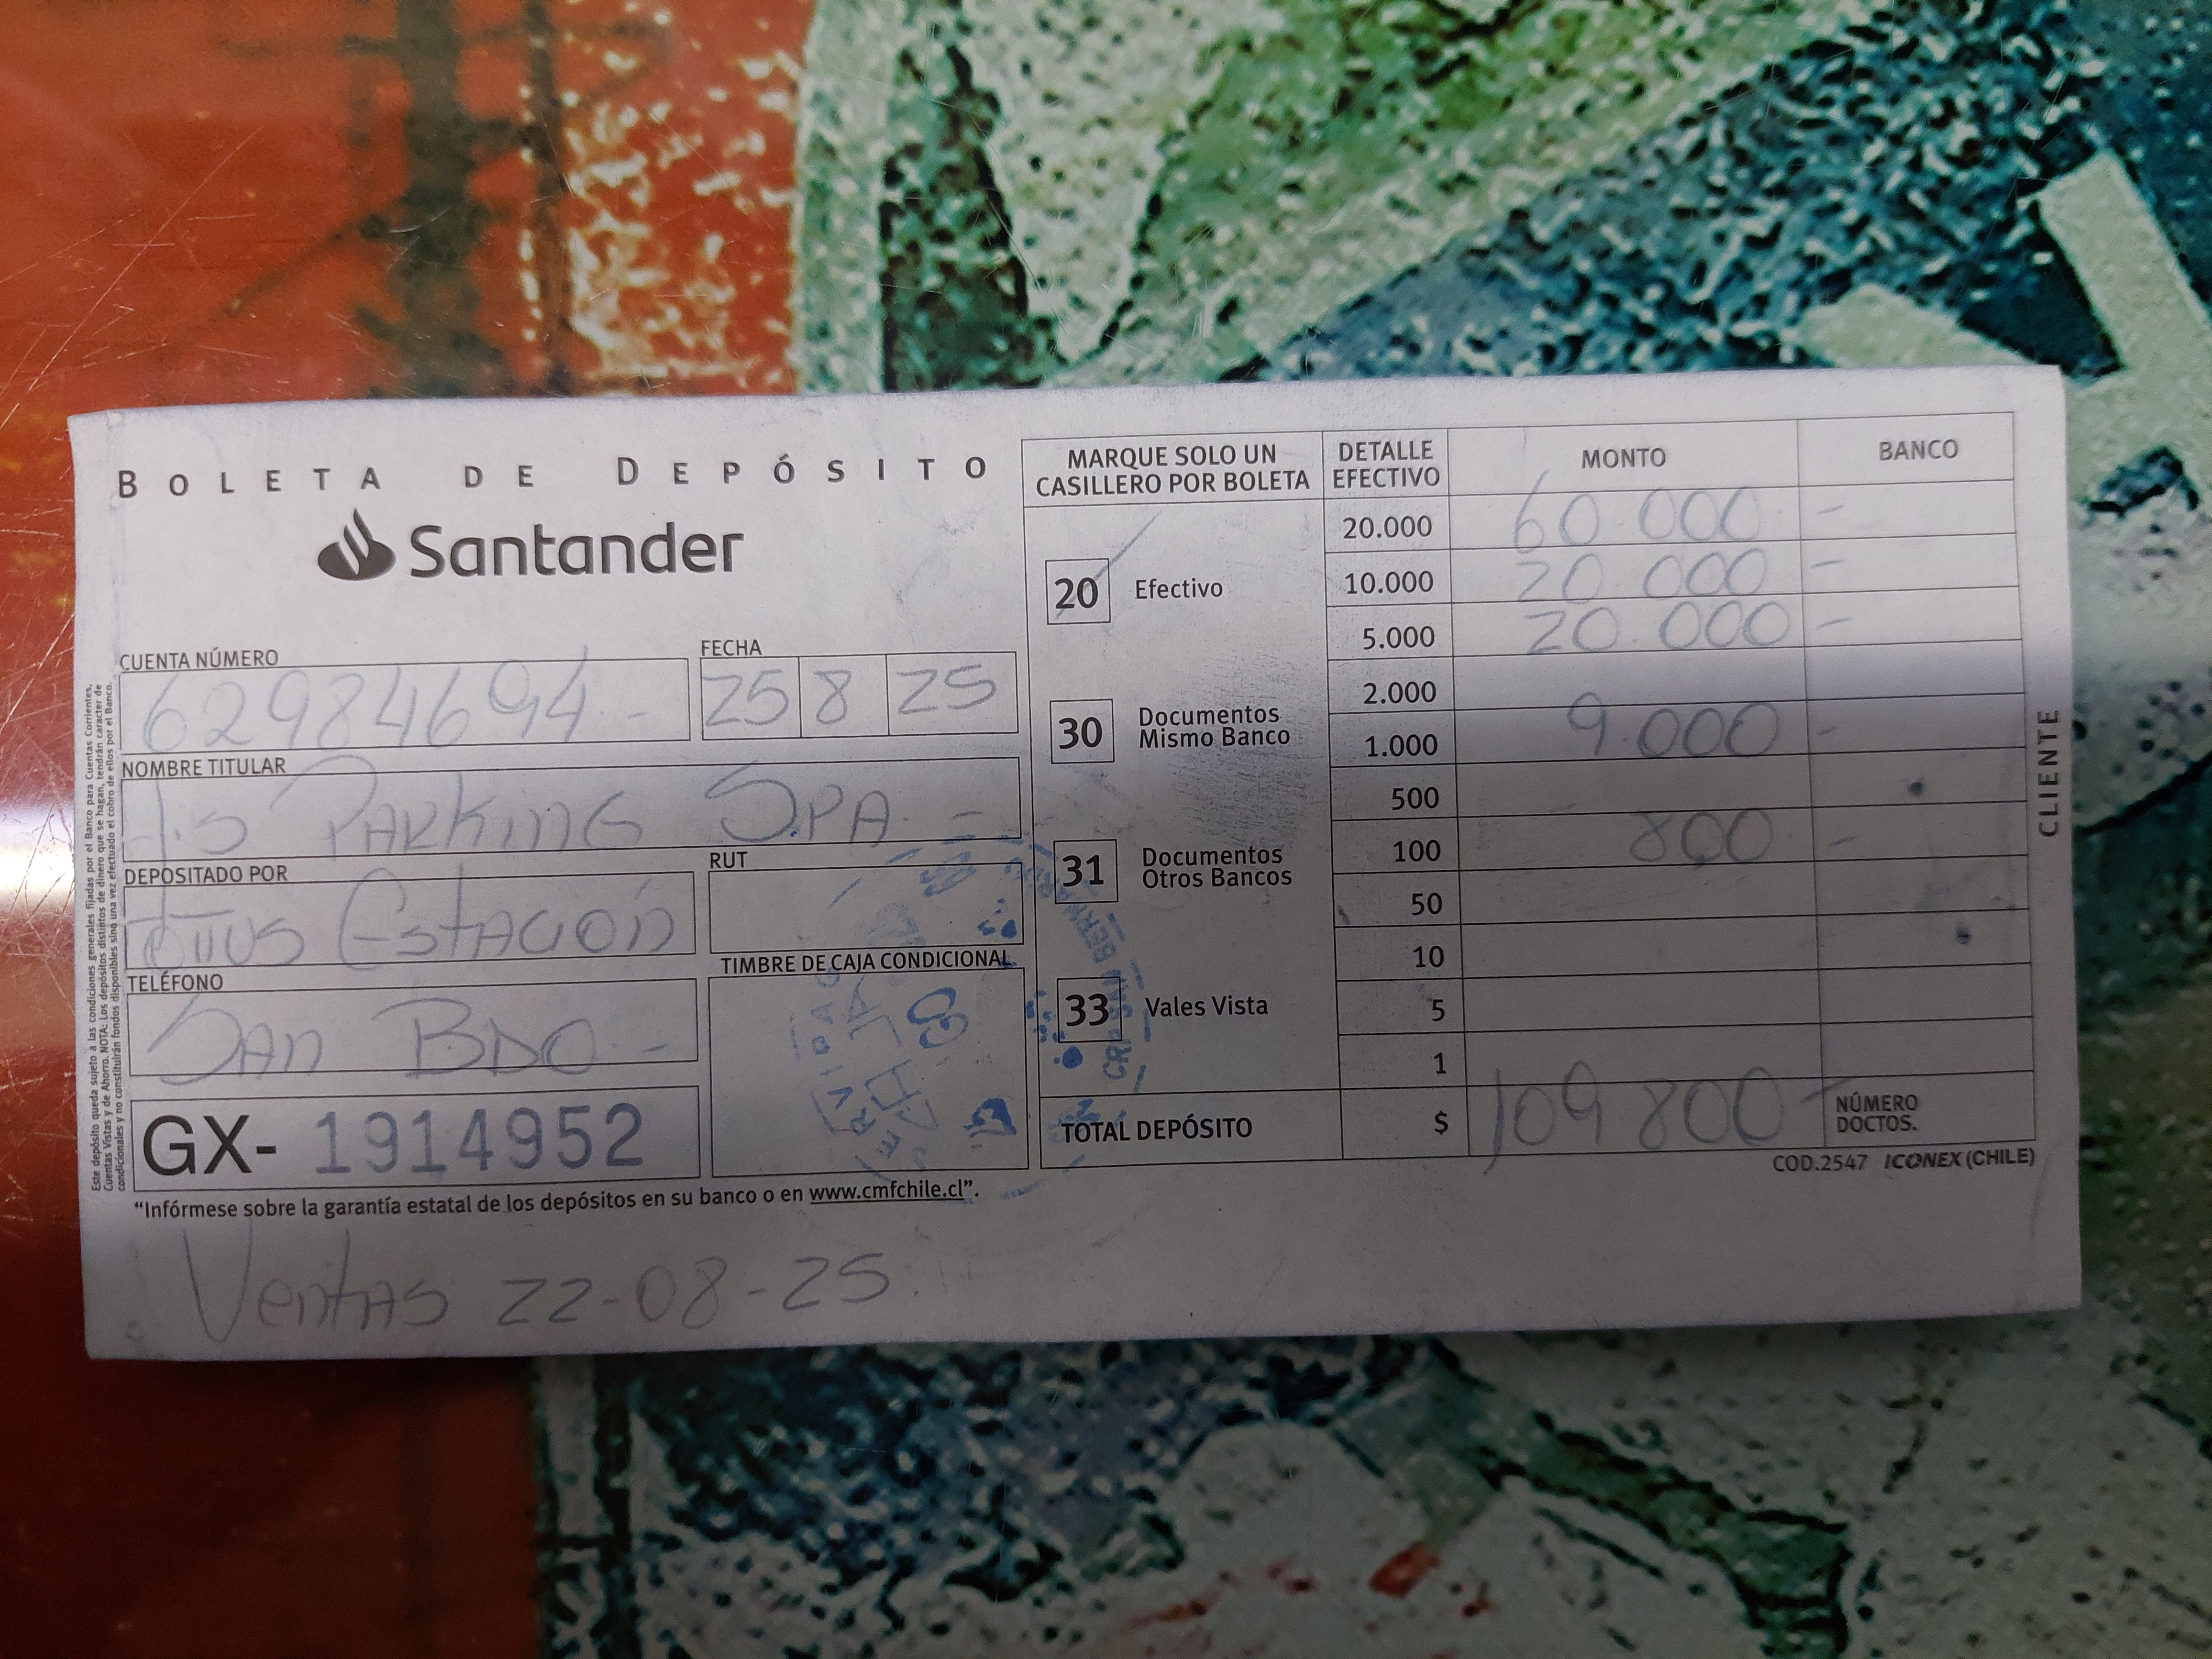 BOLETA DE DEPÓSITO
Santander
CUENTA NÚMERO
62984694 -
FECHA
25 8 25
NOMBRE TITULAR
J.S PARKING S.PA. -
DEPOSITADO POR
Estación
RUT
TELÉFONO
SAN BDO. -
TIMBRE DE CAJA CONDICIONAL
GX- 1914952
"Infórmese sobre la garantía estatal de los depósitos en su banco o en www.cmfchile.cl".
Ventas 22-08-25.
MARQUE SOLO UN
CASILLERO POR BOLETA
20 Efectivo
30 Documentos
Mismo Banco
31 Documentos
Otros Bancos
33 Vales Vista
DETALLE
EFECTIVO
MONTO
BANCO
20.000 60.000 -
10.000 20.000 -
5.000 20.000 -
2.000
1.000 9.000 -
500
100 800 -
50
10
5
1
TOTAL DEPÓSITO $ 109.800 -
NÚMERO
DOCTOS.
COD.2547 ICONEX (CHILE)
CLIENTE
Este depósito queda sujeto a las condiciones generales fijadas por el Banco para Cuentas Corrientes,
Cuentas Vistas y de Ahorro. NOTA: Los depósitos distintos de dinero que se hagan, tendrán caracter de
condicionales y no constituirán fondos disponibles sino una vez efectuado el cobro de ellos por el Banco.